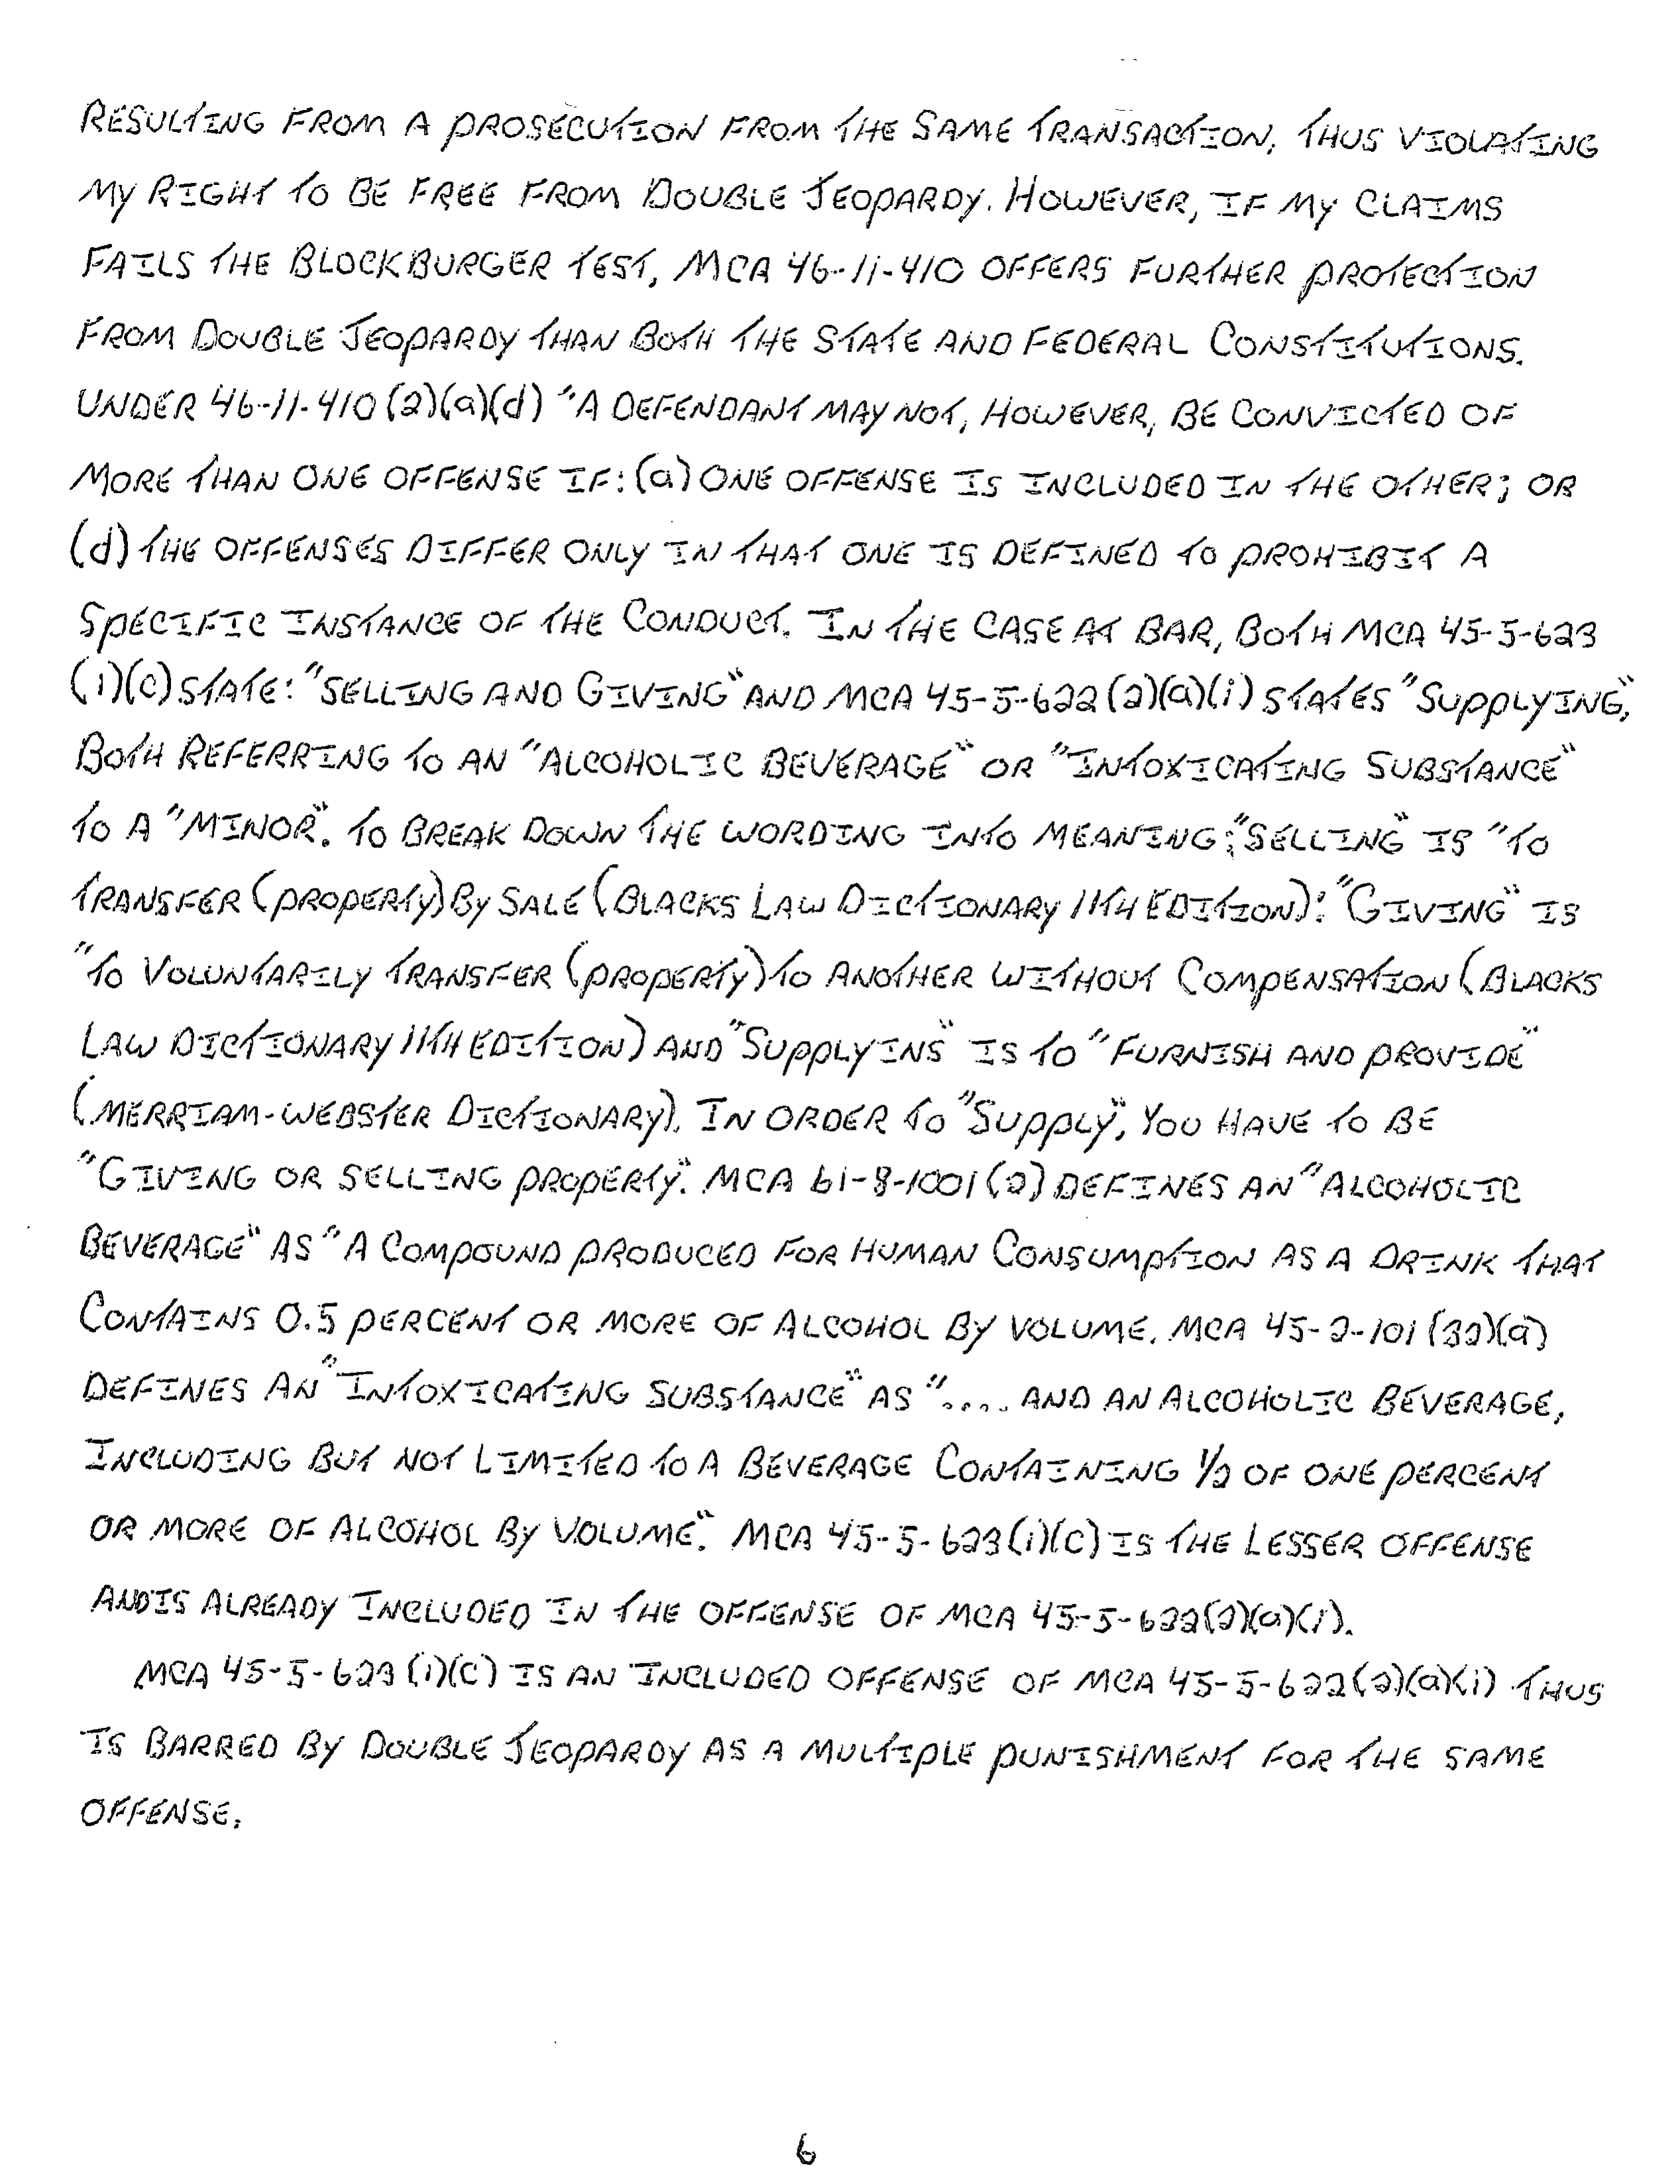 RESULTING FROM A PROSECUTION FROM THE SAME TRANSACTION, THUS VIOLATING
MY RIGHT TO BE FREE FROM DOUBLE JEOPARDY. HOWEVER, IF MY CLAIMS
FAILS THE BLOCKBURGER TEST, MCA 46-11-410 OFFERS FURTHER PROTECTION
FROM DOUBLE JEOPARDY THAN BOTH THE STATE AND FEDERAL CONSTITUTIONS.
UNDER 46-11-410(2)(a)(d) "A DEFENDANT MAY NOT, HOWEVER, BE CONVICTED OF
MORE THAN ONE OFFENSE IF: (a) ONE OFFENSE IS INCLUDED IN THE OTHER; OR
(d) THE OFFENSES DIFFER ONLY IN THAT ONE IS DEFINED TO PROHIBIT A
SPECIFIC INSTANCE OF THE CONDUCT. IN THE CASE AT BAR, BOTH MCA 45-5-623
(1)(C) STATE: "SELLING AND GIVING" AND MCA 45-5-622(2)(a)(i) STATES "SUPPLYING",
BOTH REFERRING TO AN "ALCOHOLIC BEVERAGE" OR "INTOXICATING SUBSTANCE"
TO A "MINOR". TO BREAK DOWN THE WORDING INTO MEANING: "SELLING" IS "TO
TRANSFER (PROPERTY) BY SALE (BLACKS LAW DICTIONARY 11TH EDITION): "GIVING" IS
"TO VOLUNTARILY TRANSFER (PROPERTY) TO ANOTHER WITHOUT COMPENSATION (BLACKS
LAW DICTIONARY 11TH EDITION) AND "SUPPLYINS" IS TO "FURNISH AND PROVIDE"
(MERRIAM-WEBSTER DICTIONARY). IN ORDER TO "SUPPLY", YOU HAVE TO BE
"GIVING OR SELLING PROPERTY". MCA 61-8-1001(2) DEFINES AN "ALCOHOLIC
BEVERAGE" AS "A COMPOUND PRODUCED FOR HUMAN CONSUMPTION AS A DRINK THAT
CONTAINS 0.5 PERCENT OR MORE OF ALCOHOL BY VOLUME. MCA 45-2-101(32)(a)
DEFINES AN "INTOXICATING SUBSTANCE" AS ".... AND AN ALCOHOLIC BEVERAGE,
INCLUDING BUT NOT LIMITED TO A BEVERAGE CONTAINING 1/2 OF ONE PERCENT
OR MORE OF ALCOHOL BY VOLUME". MCA 45-5-623(1)(C) IS THE LESSER OFFENSE
AND IS ALREADY INCLUDED IN THE OFFENSE OF MCA 45-5-622(2)(a)(i).
MCA 45-5-623(1)(C) IS AN INCLUDED OFFENSE OF MCA 45-5-622(2)(a)(i) THUS
IS BARRED BY DOUBLE JEOPARDY AS A MULTIPLE PUNISHMENT FOR THE SAME
OFFENSE.
6